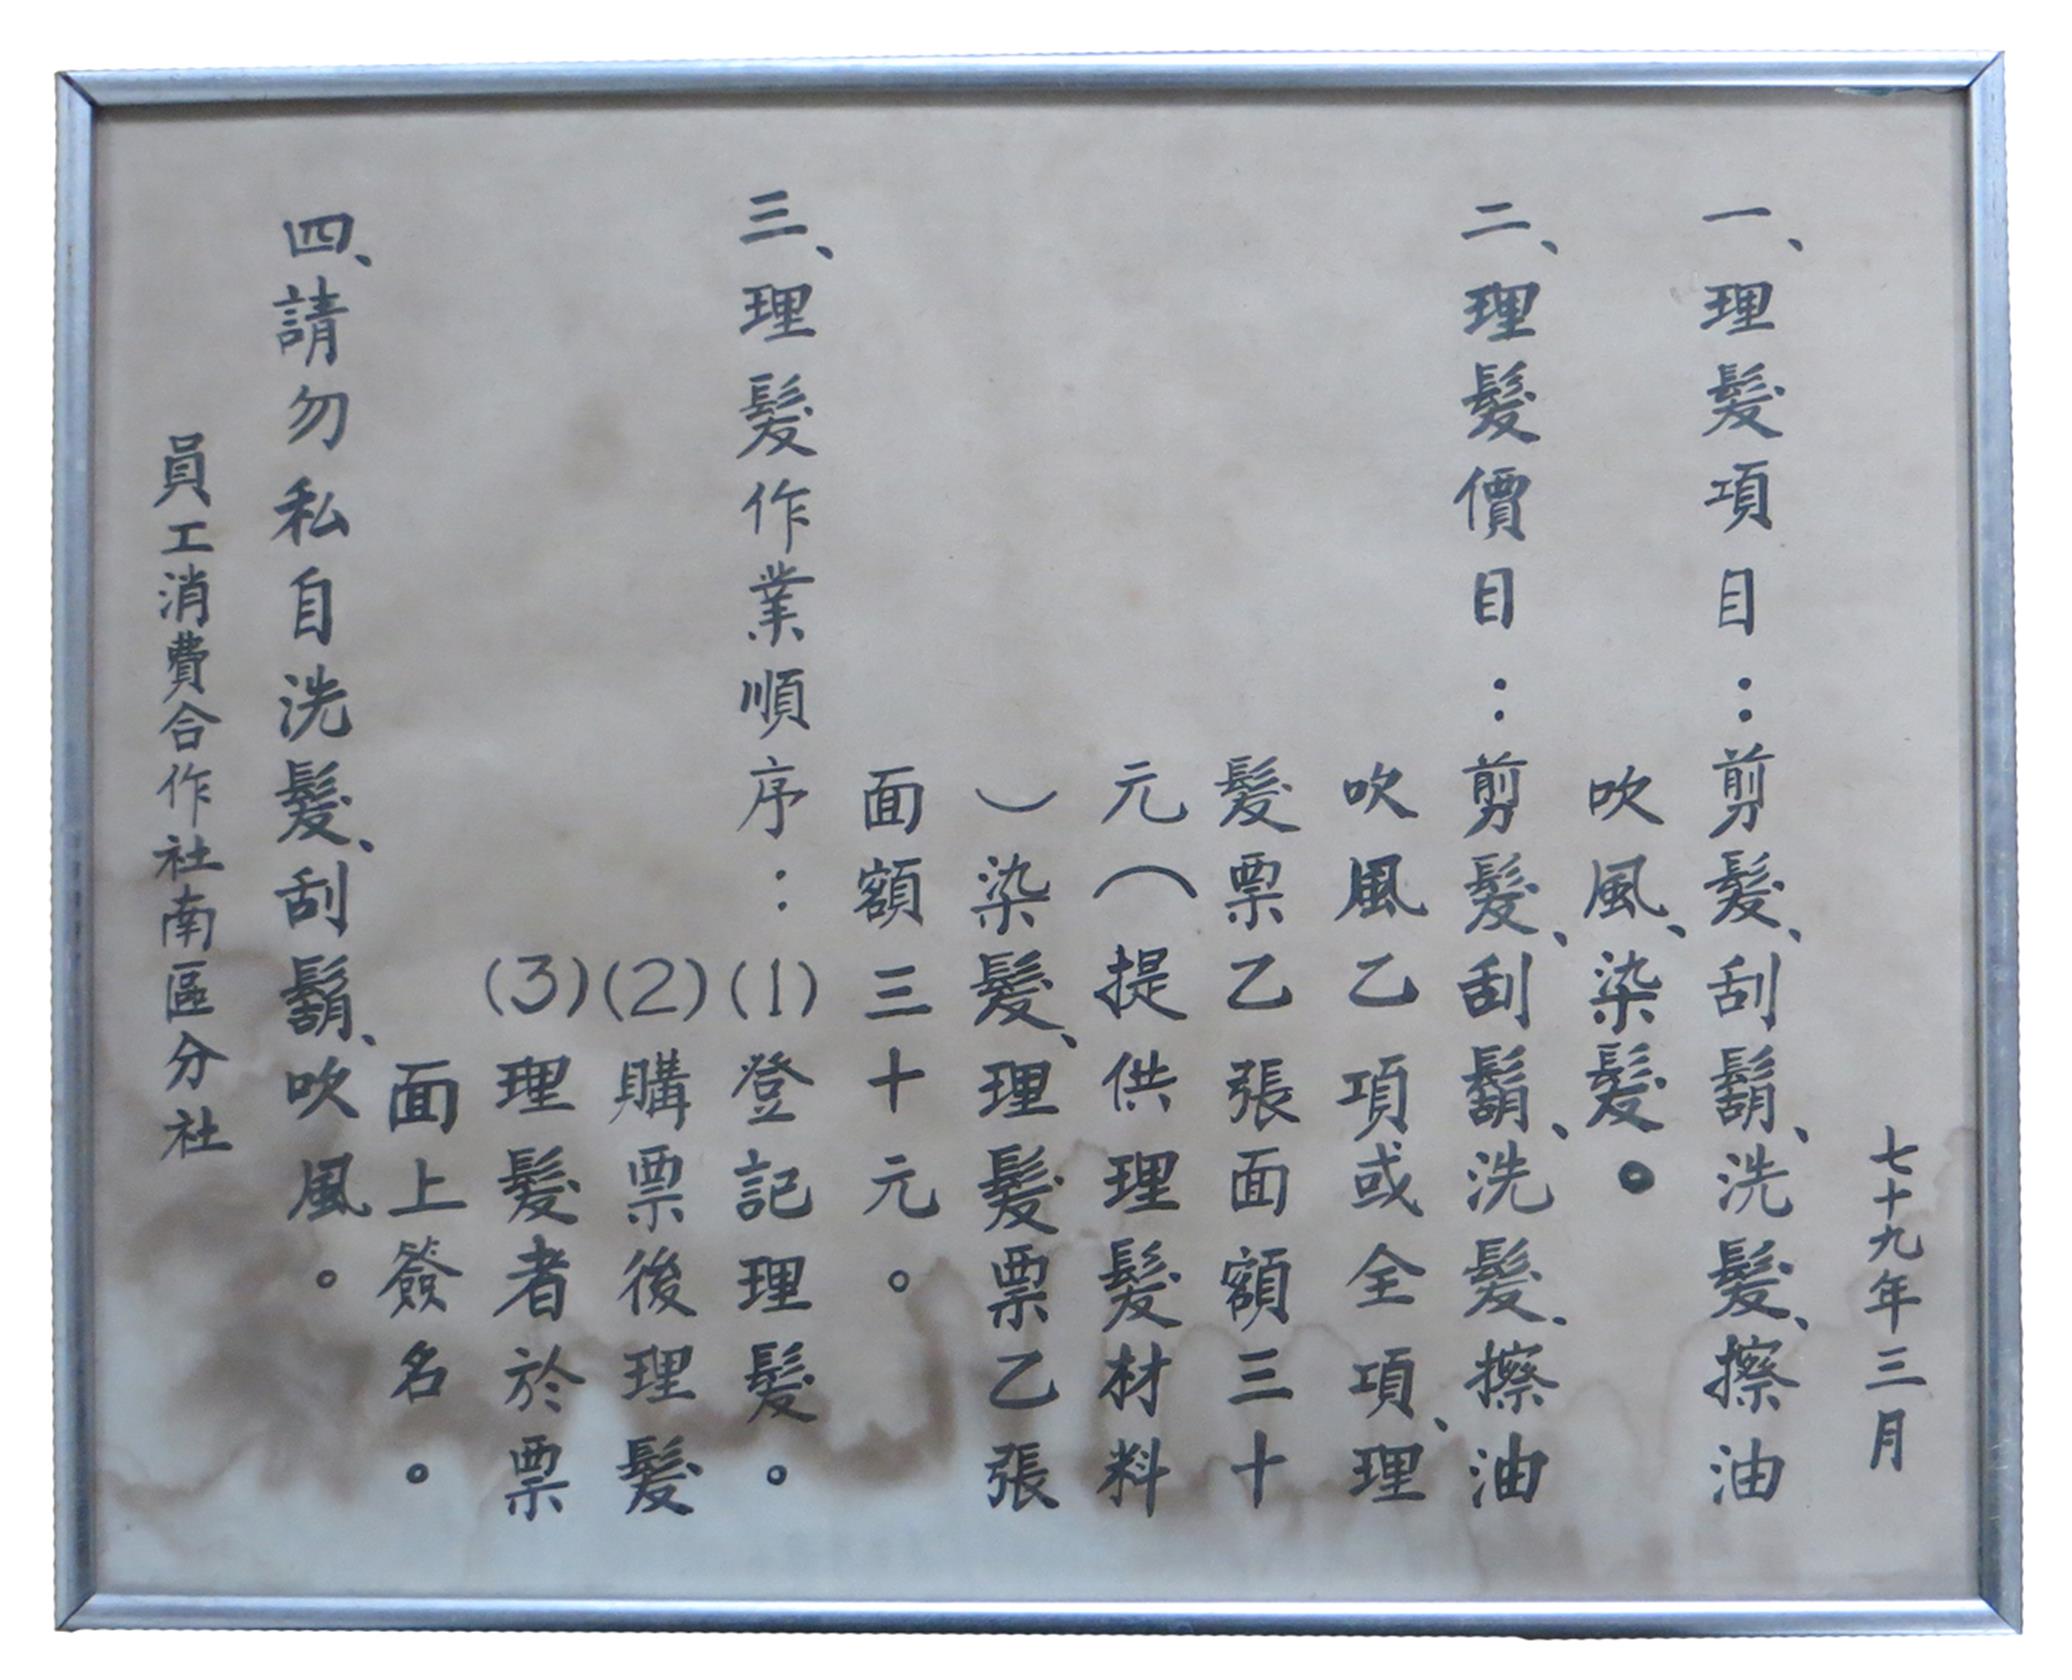 七十九年三月
一、理髮項目：剪髮、刮鬍、洗髮、擦油
吹風、染髮。
二、理髮價目：剪髮、刮鬍、洗髮、擦油
吹風乙項或全項、理
髮票乙張面額三十
元（提供理髮材料
）染髮、理髮票乙張
面額三十元。
三、理髮作業順序：(1)登記理髮。
(2)購票後理髮
(3)理髮者於票
面上簽名。
四、請勿私自洗髮、刮鬍、吹風。
員工消費合作社南區分社